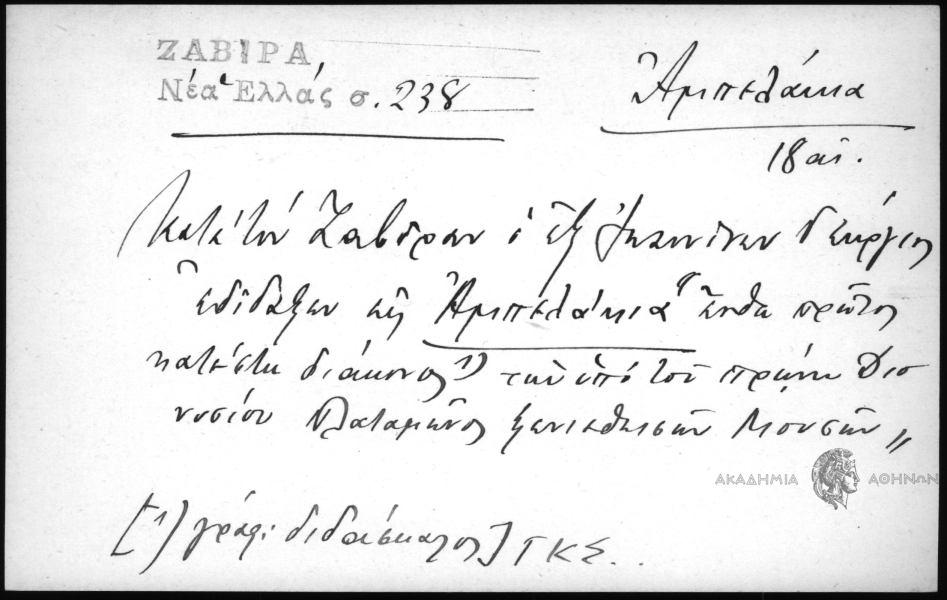 ΖΑΒΙΡΑ,
Νέα Ἑλλάς σ. 238
Ἀμπελάκια
18 αἰ.
Κατὰ τὸν Ζαβίραν ὁ ἐξ Ἰωαννίνων Γεώργιος
ἐδίδαξεν εἰς Ἀμπελάκια "ἔνθα πρῶτος
κατέστη διάκονος 1) τῶν ὑπὸ τοῦ πρώην Διο
νυσίου Πλαταμῶνος Μουσῶν"
ΑΚΑΔΗΜΙΑ ΑΘΗΝΩΝ
[1) γράφε: διδάσκαλος] ΓΚΣ.